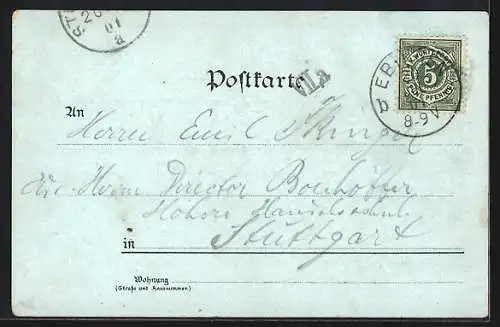 STU
20
01
Postkarte
VIIa
EB
b
8-9V
5
FÜNF PFENNIG
An
Herrn Emil
Herrn Director Bonhöffer
Höhere Handelsschule
in Stuttgart
Wohnung
(Straße und Hausnummer)